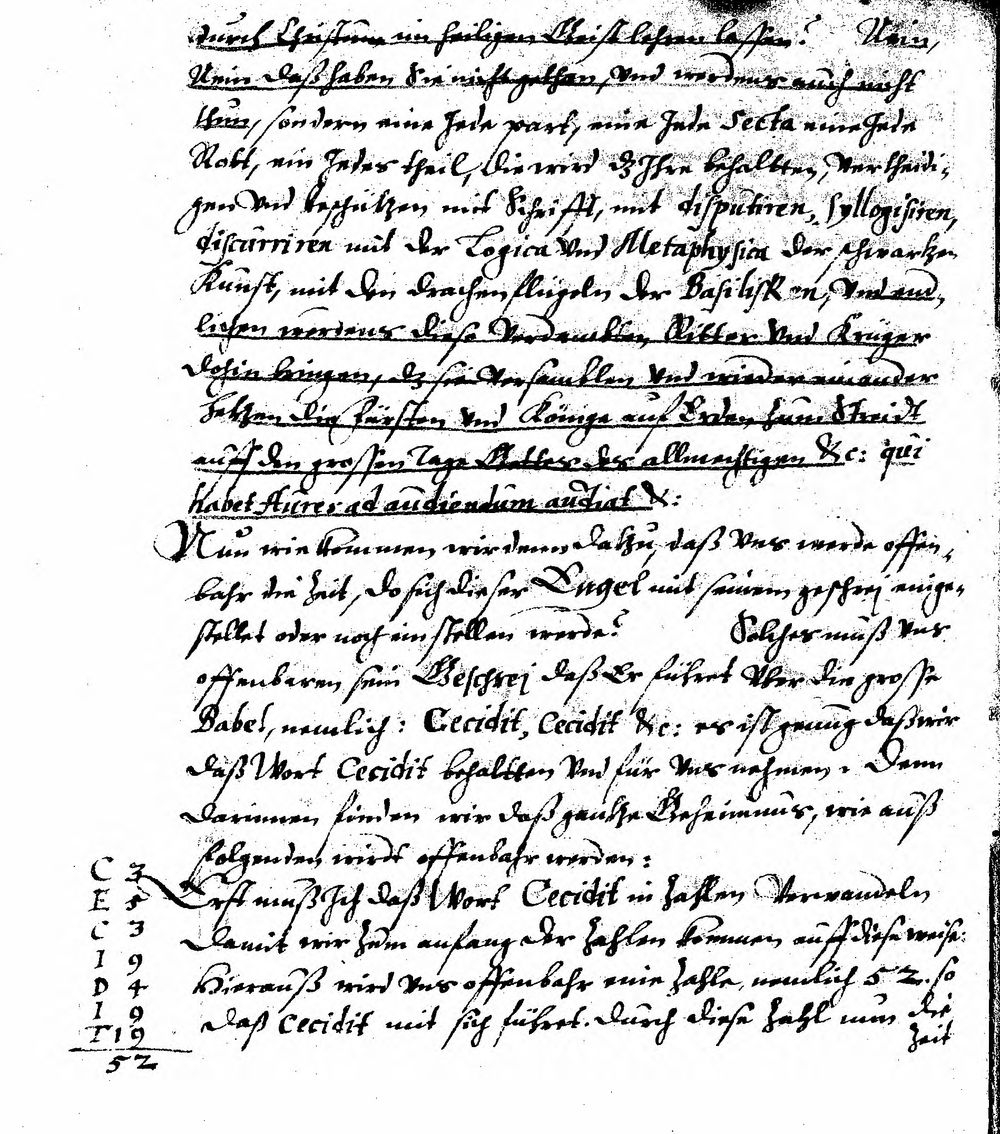 durch Christum im heiligen Geist lehren lassen? Nein,
Nein daß haben Sie nicht gethan, Vnd werdens auch nicht
thun, sondern eine Jede part, eine Jede Secta eine Jede
Rott, ein Jedes theil, die wird dz Ihre behaltten, Vertheidi-
gen Vnd beschützen mit Schrifft, mit disputiren, syllogisiren,
discurriren mit der Logica Vnd Metaphysica der schwartzen
Kunst, mit den drachen flügeln der Basilisken, Vnd end-
lichen werdens diese Verdambten Ritter Vnd Krieger
dohin bringen, dz sie Versamblen Vnd wieder einander
hetzen die fürsten Vnd Könige auf Erden, zum Streidt
auff den grossen Tage Gottes des allmechtigen &c: qui
habet Aures ad audiendum audiat &:
Nun wie kommen wir denn datzu, daß Vns werde offen-
bahr die Zeit, do sich dieser Engel mit seinem geschrej einge-
stellet oder noch einstellen werde? Solches muß Vns
offenbaren sein Geschrej daß Er führet Vber die grosse
Babel, nemlich: Cecidit, Cecidit &c: es ist genung daß wir
daß Wort Cecidit behaltten Vnd für Vns nehmen. Denn
darinnen finden wir daß gantze Geheimnus, wie auß
folgenden wirdt offenbahr werden:
Erst muß Ich daß Wort Cecidit in Zahlen Verwandeln
damit wir zum anfang der Zahlen kommen auff diese weise:
Hierauß wird Vns offenbahr eine Zahle, nemlich 52. so
daß Cecidit mit sich führet. durch diese Zahl nun die
Zeit
C 3
E 5
C 3
I 9
D 4
I 9
T 19
52